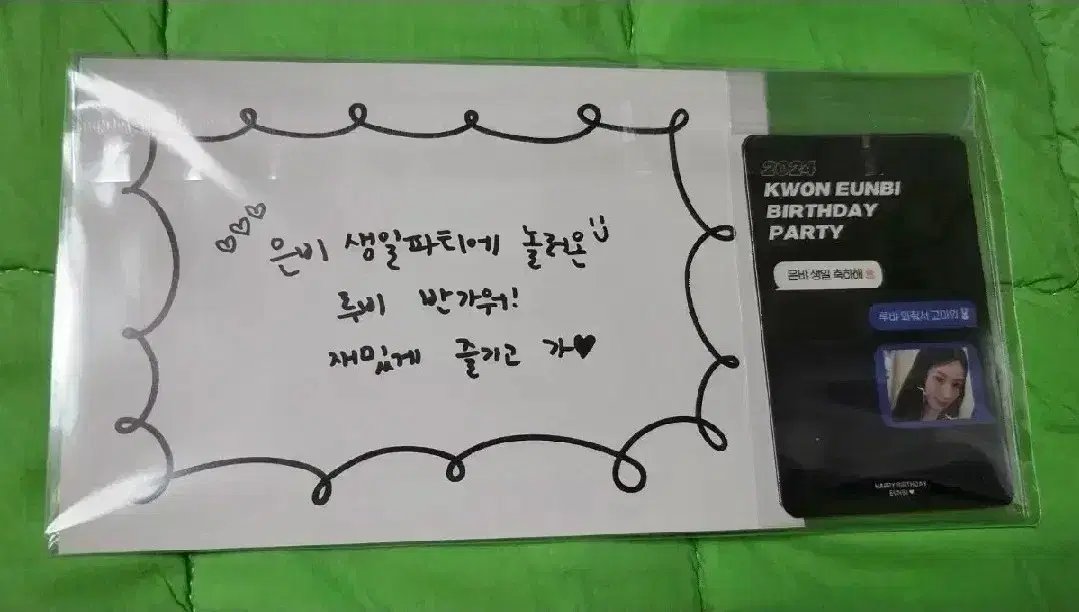 은비 생일파티에 놀러온
루비 반가워!
재밌게 즐기고 가♥
2024
KWON EUNBI
BIRTHDAY
PARTY
은비 생일 축하해
루비 와줘서 고마워
HAPPY BIRTHDAY
EUNBI ♥